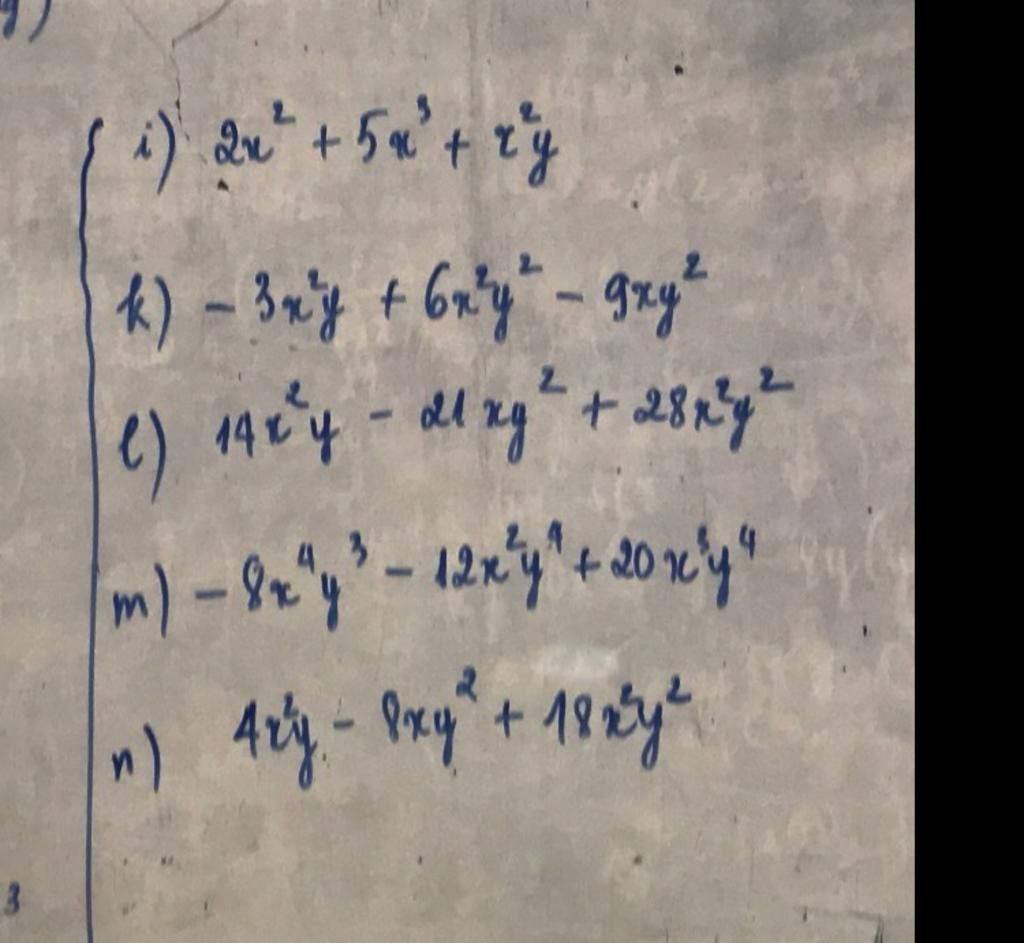 g)
i) 2x² + 5x³ + x²y
k) - 3x²y + 6x²y² - 9xy²
l) 14x²y - 21xy² + 28x²y²
m) - 8x⁴y³ - 12x²y⁴ + 20x³y⁴
n) 4x²y - 8xy² + 18x²y²
3